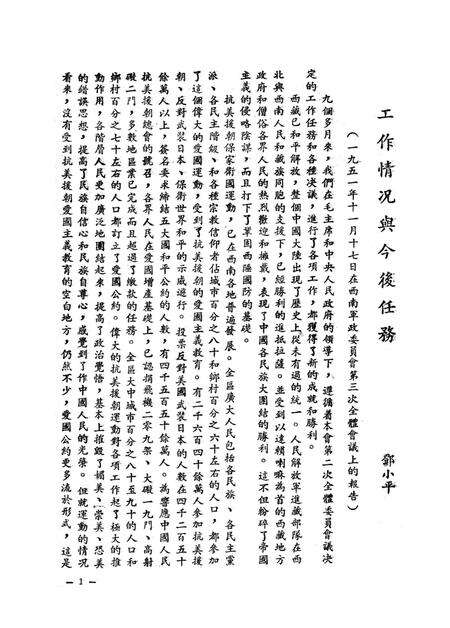 工作情况與今後任務
鄧小平
（一九五一年十一月十七日在西南軍政委員會第三次全體會議上的報告）
九個多月來，我們在毛主席和中央人民政府的領導下，遵循着本會第二次全體委員會議决
定的工作任務和各種决議，進行了各項工作，都獲得了新的成就和勝利。
西藏已和平解放，整個中國大陸出現了歷史上從未有過的統一。人民解放軍進藏部隊在西
北與西南人民和藏族同胞的支援下，已經勝利的進抵拉薩。並受到以達賴喇嘛為首的西藏地方
政府和僧俗各界人民的熱烈歡迎和擁戴，表現了中國各民族大團結的勝利。這不但粉碎了帝國
主義的侵略陰謀，而且打下了鞏固西陲國防的基礎。
抗美援朝保家衛國運動，已在西南各地普遍發展。全區廣大人民包括各民族、各民主黨
派、各民主階級、和各種宗教信仰者佔城市百分之八十和鄉村百分之六十左右的人口，都參加
了這個偉大的愛國運動，受到了抗美援朝的愛國主義教育。有二千六百四十餘萬人參加抗美援
朝、反對武裝日本、保衛世界和平的示威遊行。投票反對美國武裝日本的人數在四千二百五十
餘萬人以上，簽名要求締結五大國和平公約的人數，有四千五百五十餘萬人。為響應中國人民
抗美援朝總會的號召，各界人民在愛國增產基礎上，已認捐飛機二〇九架、大礮一九門、高射
礮二門，多數地區業已完成而且超過了繳款的任務。全區大中城市百分之八十至九十的人口和
鄉村百分之七十左右的人口都訂立了愛國公約。偉大的抗美援朝運動對各項工作起了極大的推
動作用，各階層人民更加廣泛地團結起來，提高了政治覺悟，基本上摧毀了媚美、崇美、恐美
的錯誤思想，提高了民族自信心和民族自尊心，感覺到了作中國人民的光榮。但就運動的情况
看來，沒有受到抗美援朝愛國主義教育的空白地方，仍然不少，愛國公約更多流於形式，這是
— 1 —